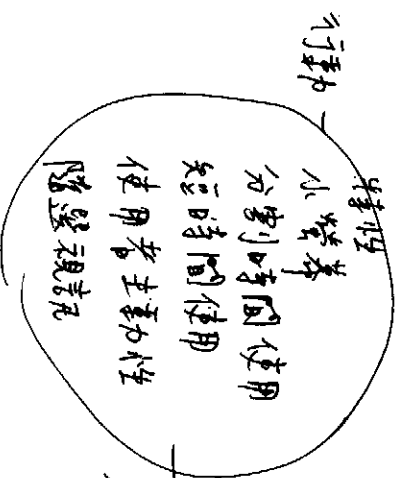 行動
特性
小螢幕
分割時間使用
短時間使用
使用者主動性
隨選視訊